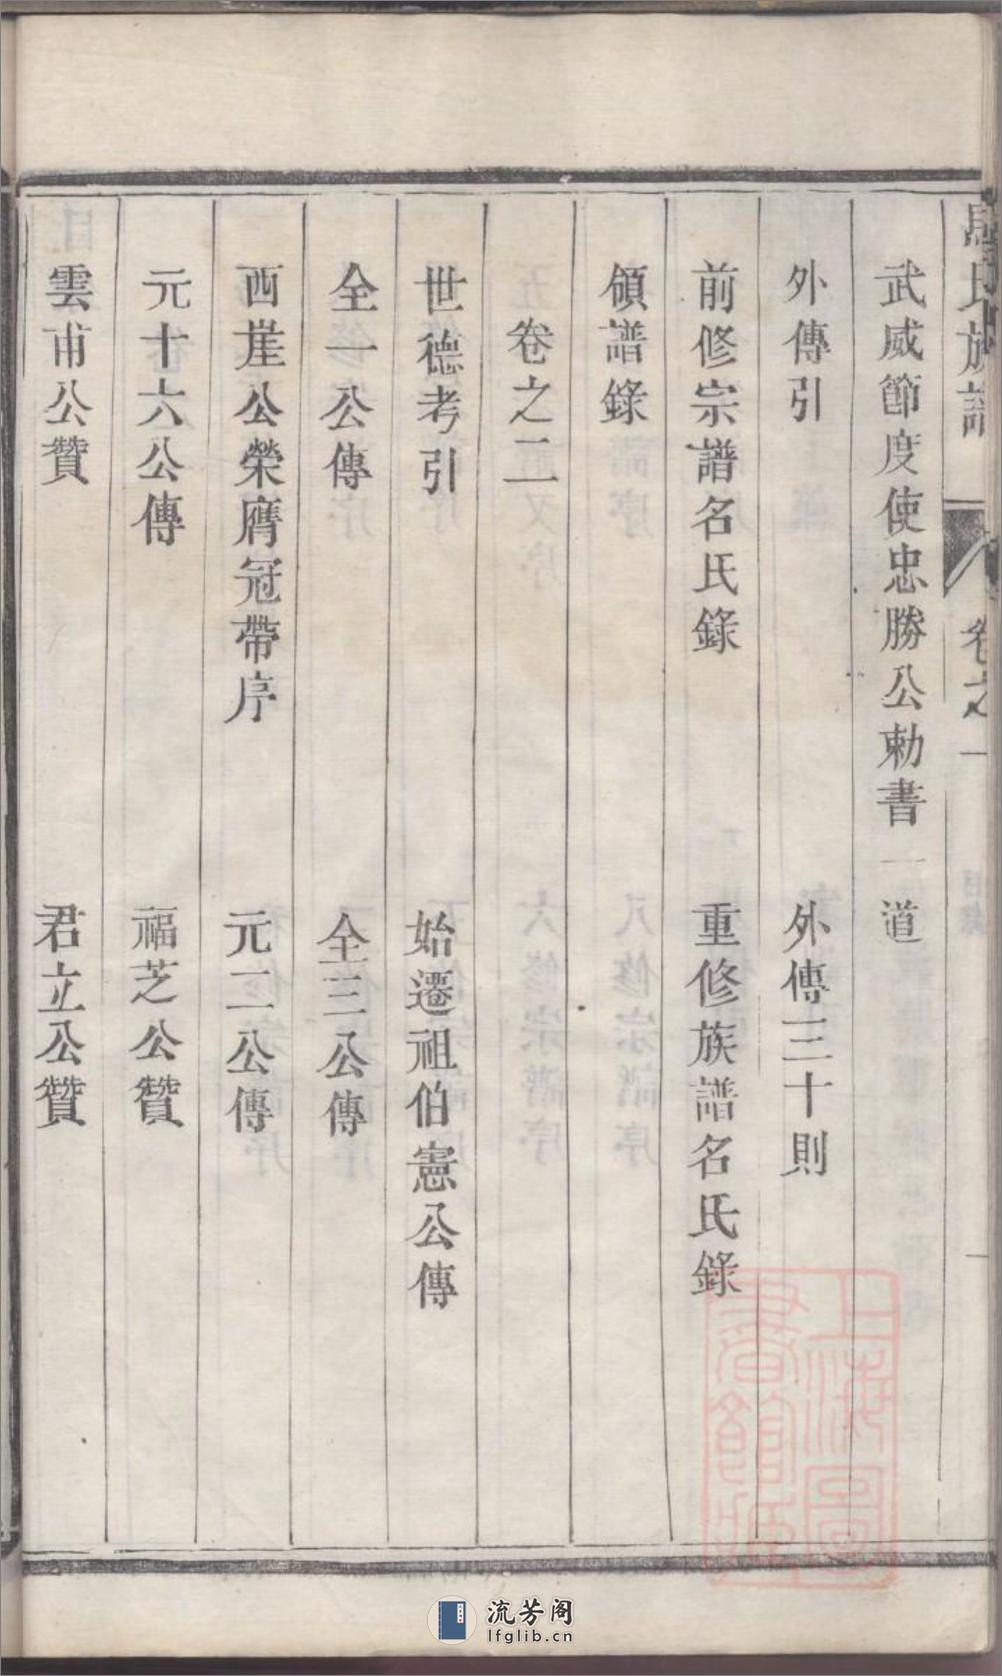 氏族譜 卷之一
武威節度使忠勝公勅書一道
外傳引 外傳三十則
前修宗譜名氏錄 重修族譜名氏錄
領譜錄
卷之二
世德考引 始遷祖伯憲公傳
全一公傳 全三公傳
西崖公榮膺冠帶序 元二公傳
元十六公傳 福芝公贊
雲甫公贊 君立公贊
上海圖書館藏
流芳阁
lfglib.cn